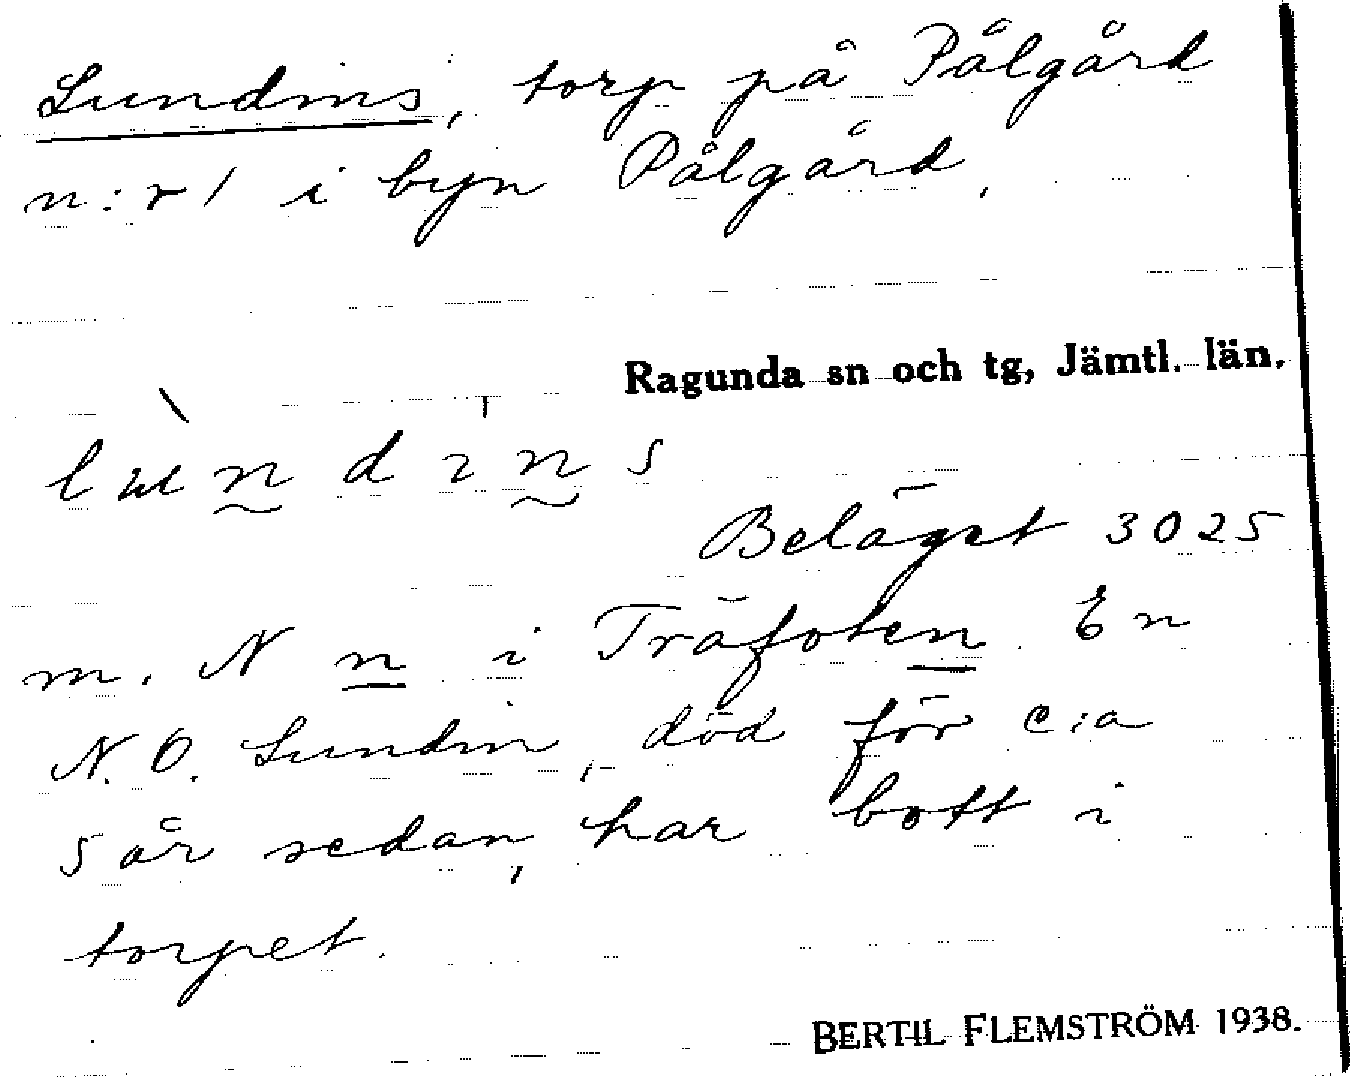 Lundins, torp på Pålgård
n:r 1 i byn Pålgård.
Ragunda sn och tg, Jämtl. län.
lùndɪns
Beläget 3025
m. N n i Träfoten. En
N. O. Lundin, död för c:a
5 år sedan, har bott i
torpet.
BERTIL FLEMSTRÖM 1938.